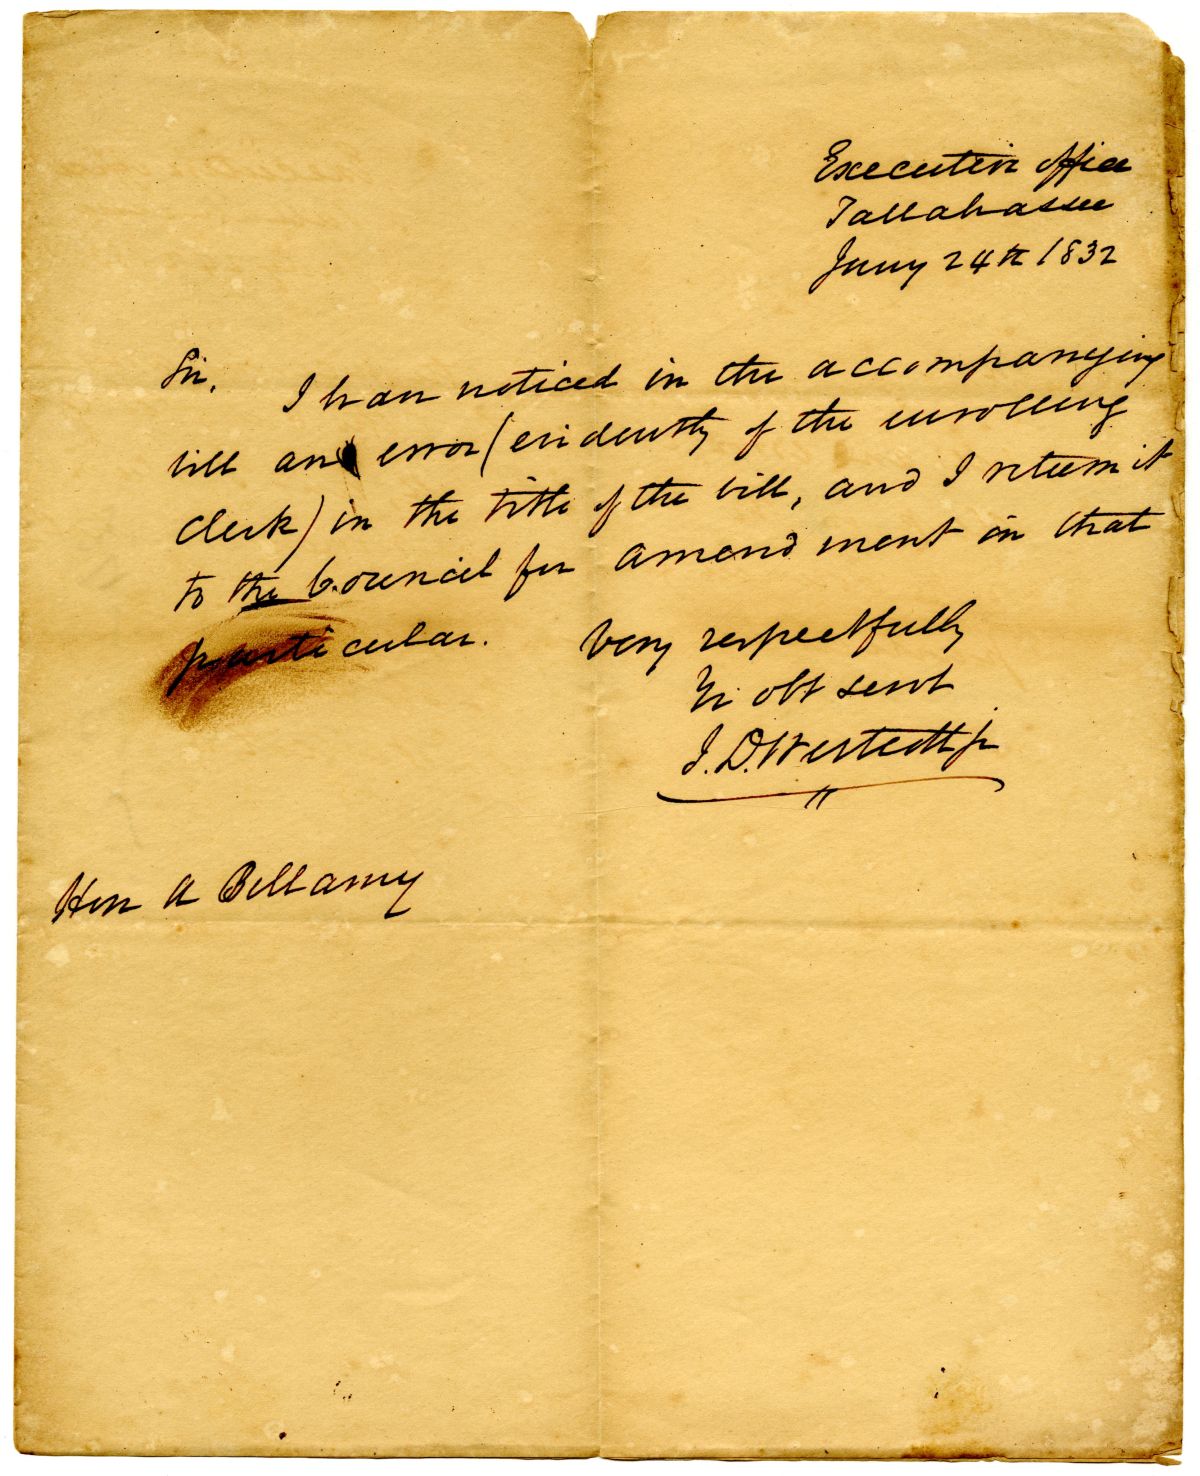 Executive office
Tallahassee
Jany 24th 1832
Sir,
I have noticed in the accompanying
bill an error (evidently of the enrolling
clerk) in the title of the bill, and I return it
to the Council for amendment in that
particular. Very respectfully
Yr obt servt
J. D. Westcott jr
Hon A Bellamy